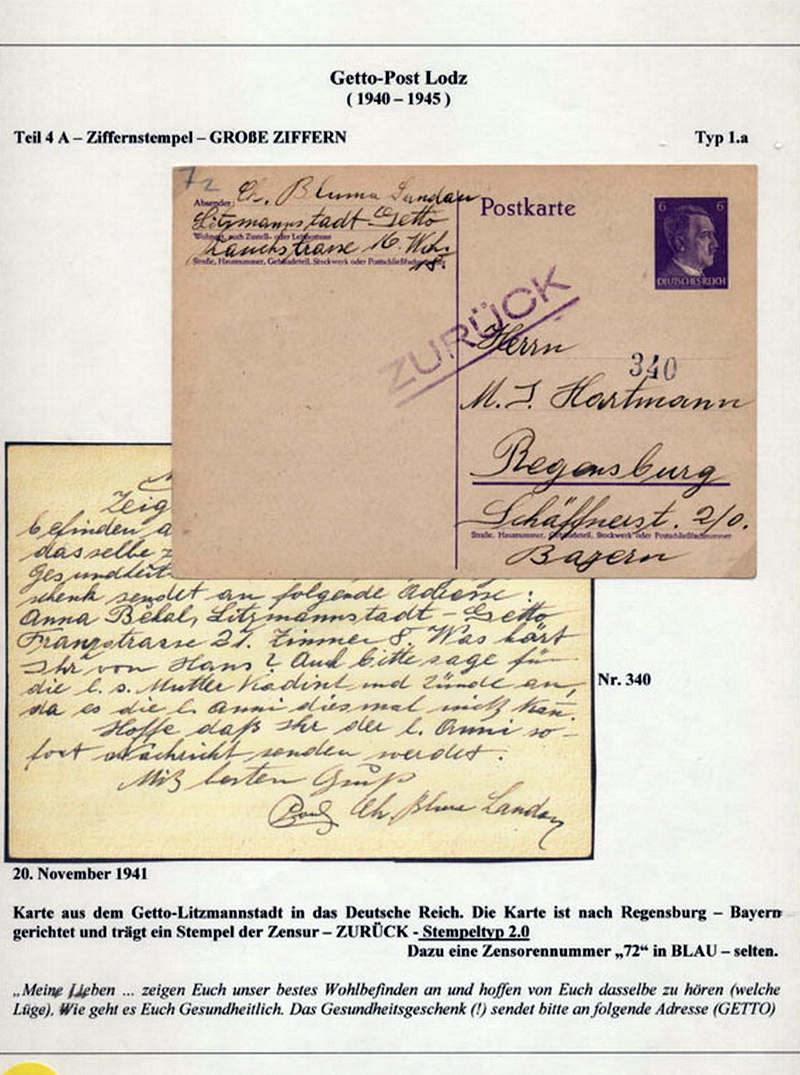 Getto-Post Lodz
( 1940 – 1945 )
Teil 4 A – Ziffernstempel – GROßE ZIFFERN
Typ 1.a
72
Absender: Ch. Bluma Landau
Litzmannstadt-Getto
Wohnort, auch Zustell- oder Leitpostamt
16. Wohn. 15.
Straße, Hausnummer, Gebäudeteil, Stockwerk oder Postschließfachnummer
Postkarte
6 6
DEUTSCHES REICH
ZURÜCK
Herrn
340
M. J. Hartmann
Regensburg
Schäffnerst. 2/0.
Straße, Hausnummer, Gebäudeteil, Stockwerk oder Postschließfachnummer
Bayern
Zeig
befinden a
dasselbe z
Gesundheit
schenk sendet an folgende Adresse:
Anna Behal, Litzmannstadt-Getto
Franzstrasse 21. Zimmer 8. Was hört
Ihr von Hans? Auch bitte sage für
die l. s. Mutter Kadisch und zünde an,
da es die l. Anni diesmal nicht kann.
Hoffe daß Ihr der l. Anni so-
fort Nachricht senden werdet.
Mit besten Gruß
Ch. Bluma Landau
Nr. 340
20. November 1941
Karte aus dem Getto-Litzmannstadt in das Deutsche Reich. Die Karte ist nach Regensburg – Bayern
gerichtet und trägt ein Stempel der Zensur – ZURÜCK - Stempeltyp 2.0
Dazu eine Zensorennummer „72“ in BLAU – selten.
„Meine Lieben ... zeigen Euch unser bestes Wohlbefinden an und hoffen von Euch dasselbe zu hören (welche
Lüge). Wie geht es Euch Gesundheitlich. Das Gesundheitsgeschenk (!) sendet bitte an folgende Adresse (GETTO)